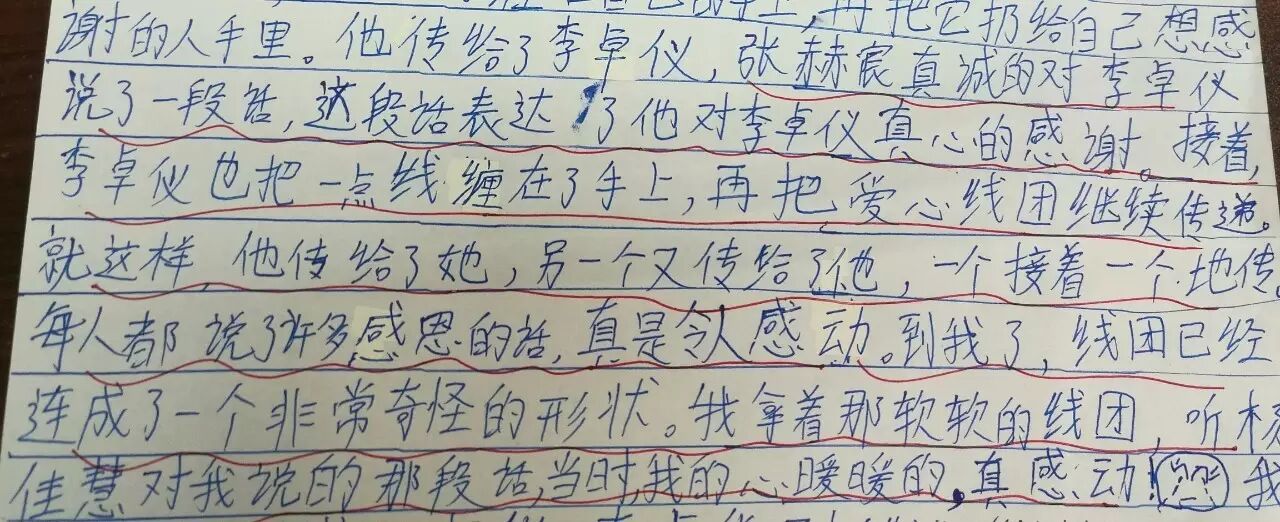 手上,再把它扔给自己想感
谢的人手里。他传给了李卓仪,张赫宸真诚的对李卓仪
说了一段话,这段话表达了他对李卓仪真心的感谢。接着,
李卓仪也把一点线缠在了手上,再把爱心线团继续传递。
就这样,他传给了她,另一个又传给了他,一个接着一个地传。
每人都说了许多感恩的话,真是令人感动。到我了,线团已经
连成了一个非常奇怪的形状。我拿着那软软的线团,听
佳慧对我说的那段话,当时,我的心暖暖的,真感动!我